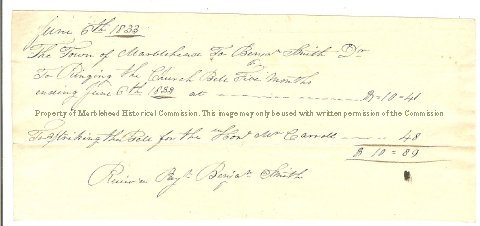 June 6th 1833
The Town of Marblehead To Benjn Smith Dr
To Ringing the Church Bell Five Months
ending June 6th 1833 at $ 10=41
Property of Marblehead Historical Commission. This image may only be used with written permission of the Commission
To Striking the Bell for the Hon. Mr Carroll 48
$ 10=89
Benjn Smith